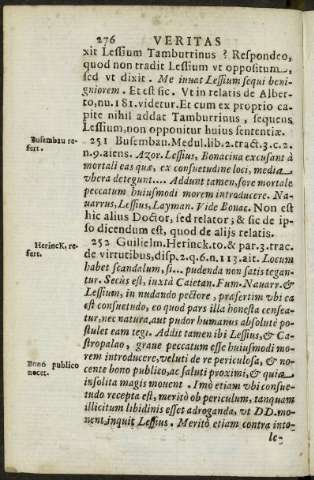 276 VERITAS
xit Lessium Tamburrinus? Respondeo,
quod non tradit Lessium vt oppositum,
sed vt dixit. Me inuat Lessium sequi beni-
gniorem. Et est sic. Vt in relatis de Alber-
to, nu. 181. videtur. Et cum ex proprio ca-
pite nihil addat Tamburrinus, sequens
Lessium, non opponitur huius sententiæ.
Busembau re-
fert.
251 Busembau. Medul. lib. 2. tract. 3. c. 2.
n. 9. aiens. Azor. Lessius, Bonacina excusant à
mortali eas quæ, ex consuetudine loci, media
vbera detegunt.... Addunt tamen, fore mortale
peccatum huiusmodi morem introducere. Na-
uarrus, Lessius, Layman. Vide Bonac. Non est
hic alius Doctor, sed relator; & sic de ip-
so dicendum est, quod de alijs relatis.
Herinck, re-
fert.
252 Guilielm. Herinck. to. & par. 3. trac.
de virtutibus, disp. 2. q. 6. n. 113. ait. Locum
habet scandalum, si... pudenda non satis tegan-
tur. Secùs est, iuxtà Caietan. Fum. Nauarr. &
Lessium, in nudando pectore, præsertim vbi ea
est consuetudo, eo quod pars illa honesta censea-
tur, nec natura, aut pudor humanus absolutè po-
stulet eam tegi. Addit tamen ibi Lessius, & Ca-
stropalao, graue peccatum esse huiusmodi mo-
rem introducere, veluti de re periculosa, & no-
Bono publico
nocet.
cente bono publico, ac saluti proximi, & quia
insolita magis mouent. Imò etiam vbi consue-
tudo recepta est, meritò ob periculum, tanquam
illicitum libidinis esset adroganda, vt DD. mo-
nent, inquit Lessius. Meritò etiam contra into-
le-